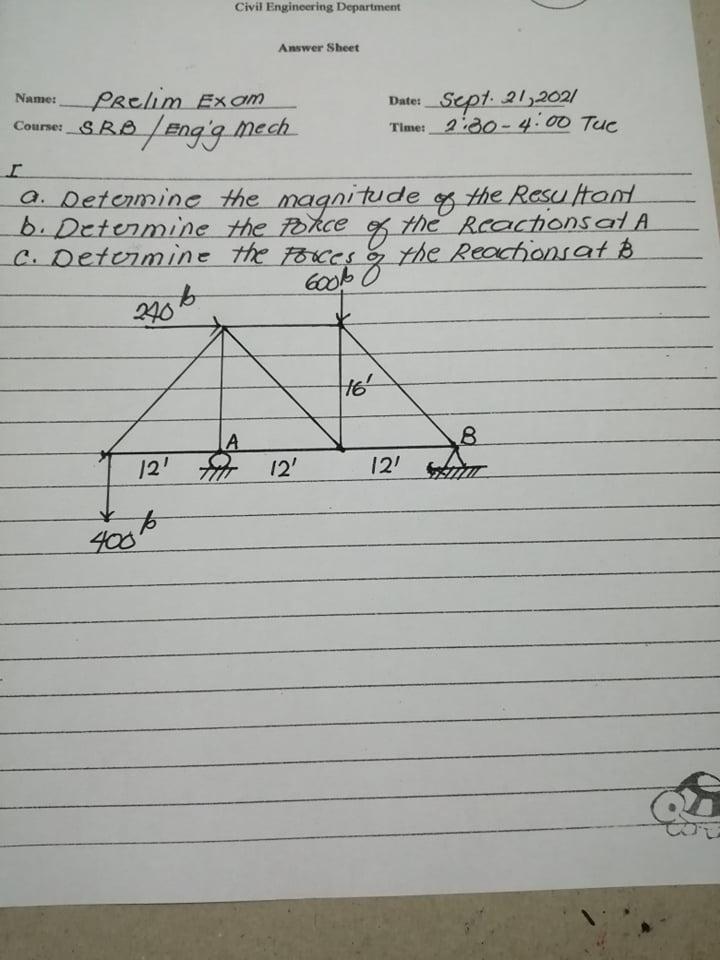 Civil Engineering Department
Answer Sheet
Name: Prelim Exam
Date: Sept. 21, 2021
Course: SRB / Eng'g Mech
Time: 2:30 - 4:00 Tue
I
a. Determine the magnitude of the Resultant
b. Determine the Force of the Reactions at A
c. Determine the Forces of the Reactions at B
600 lb
240 lb
16'
A
B
12' 12' 12'
400 lb